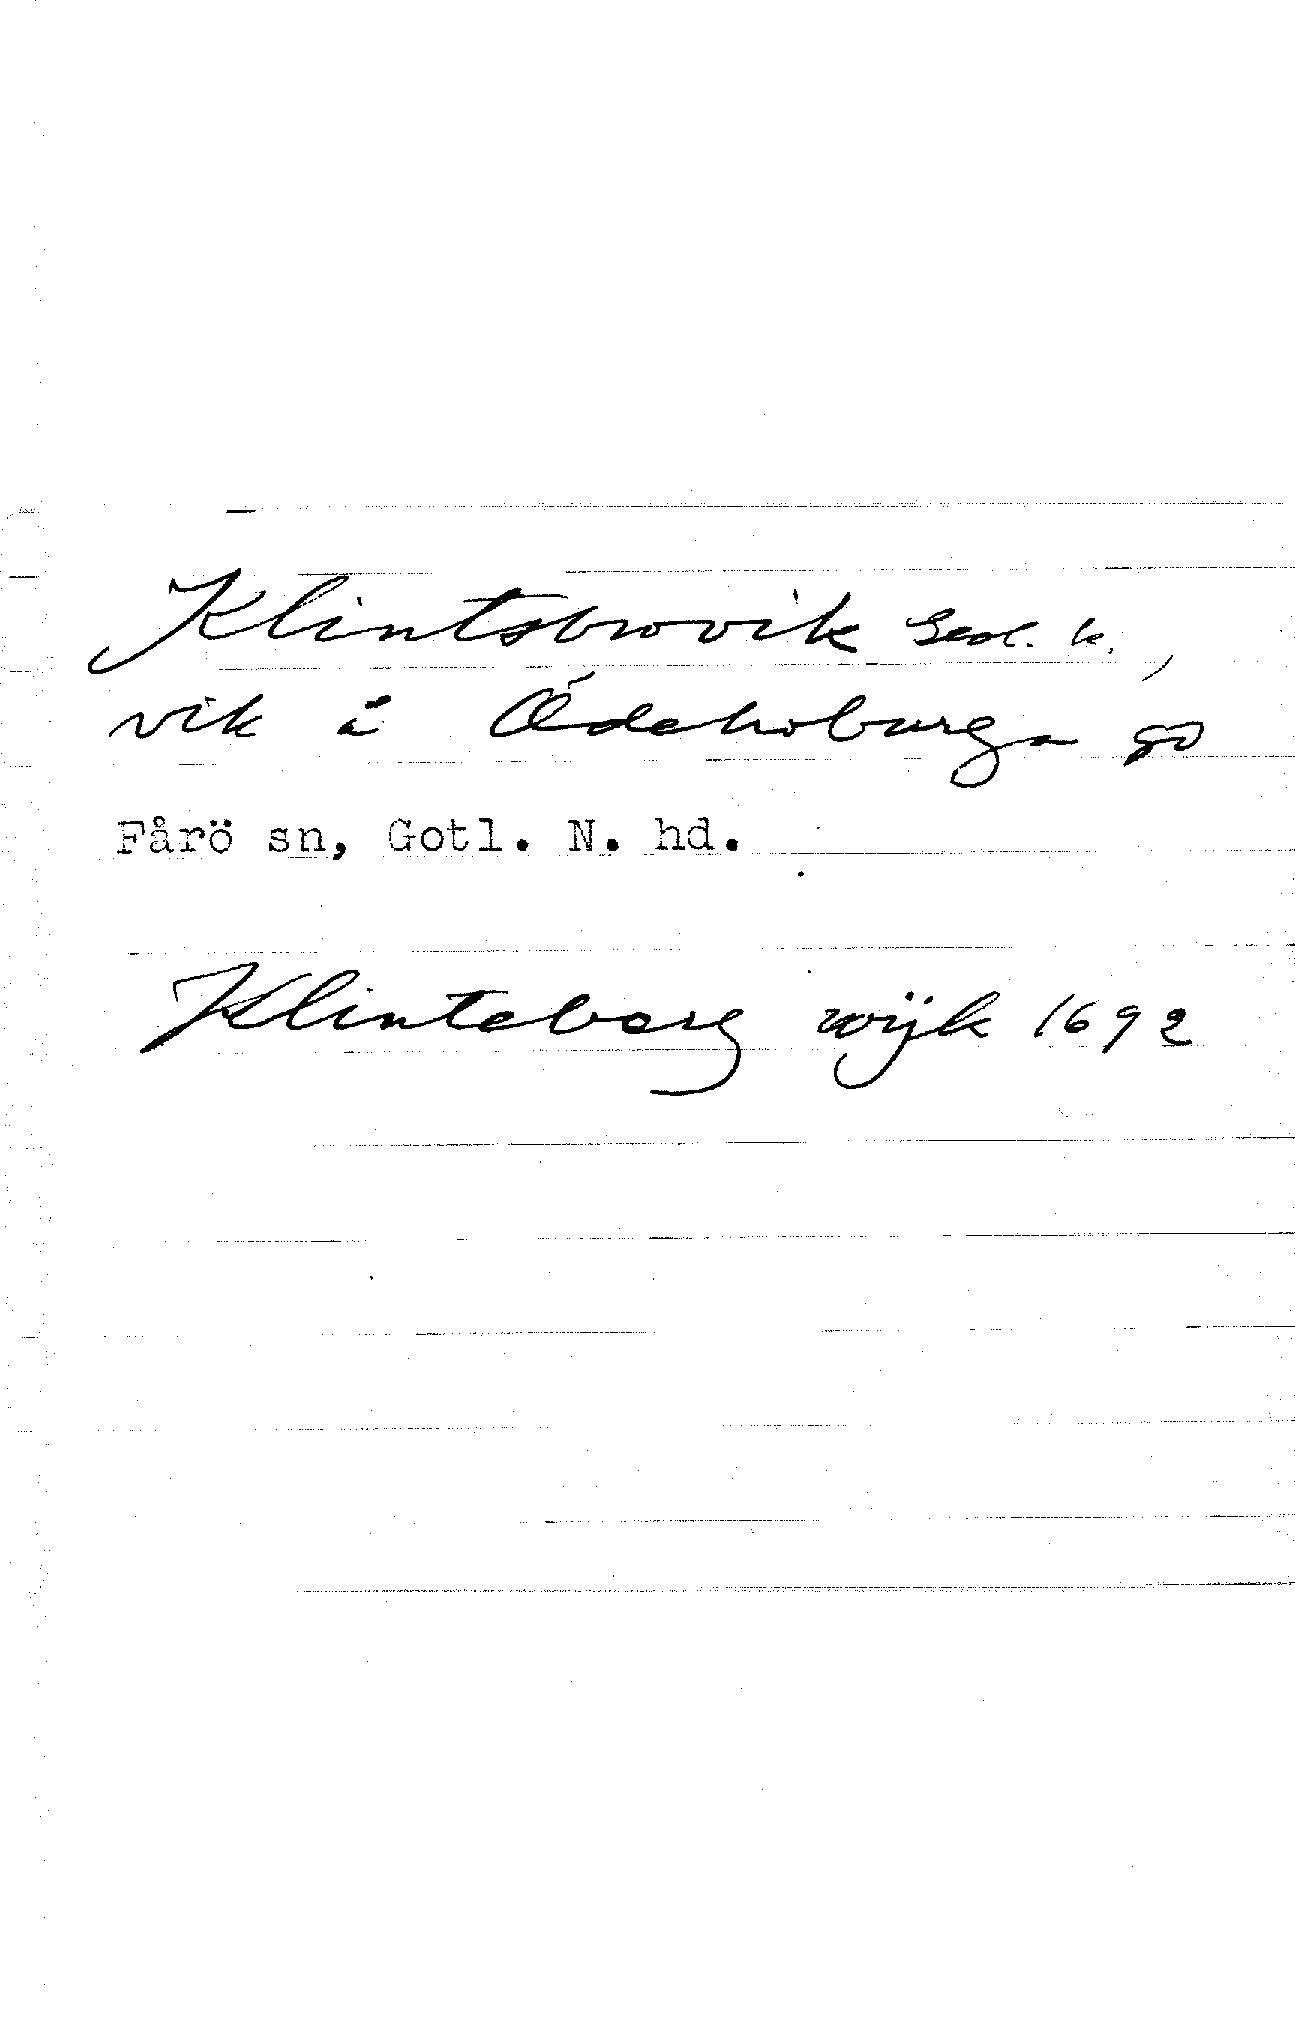 Klintsbrovik Geol. k.,
vik å Ödehoburga gd
Fårö sn, Gotl. N. hd.
Klinteberg wijk 1692